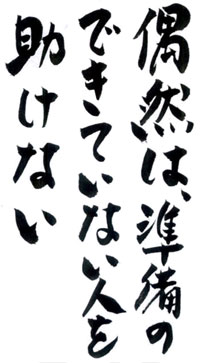 偶然は、準備の
できていない人を
助けない